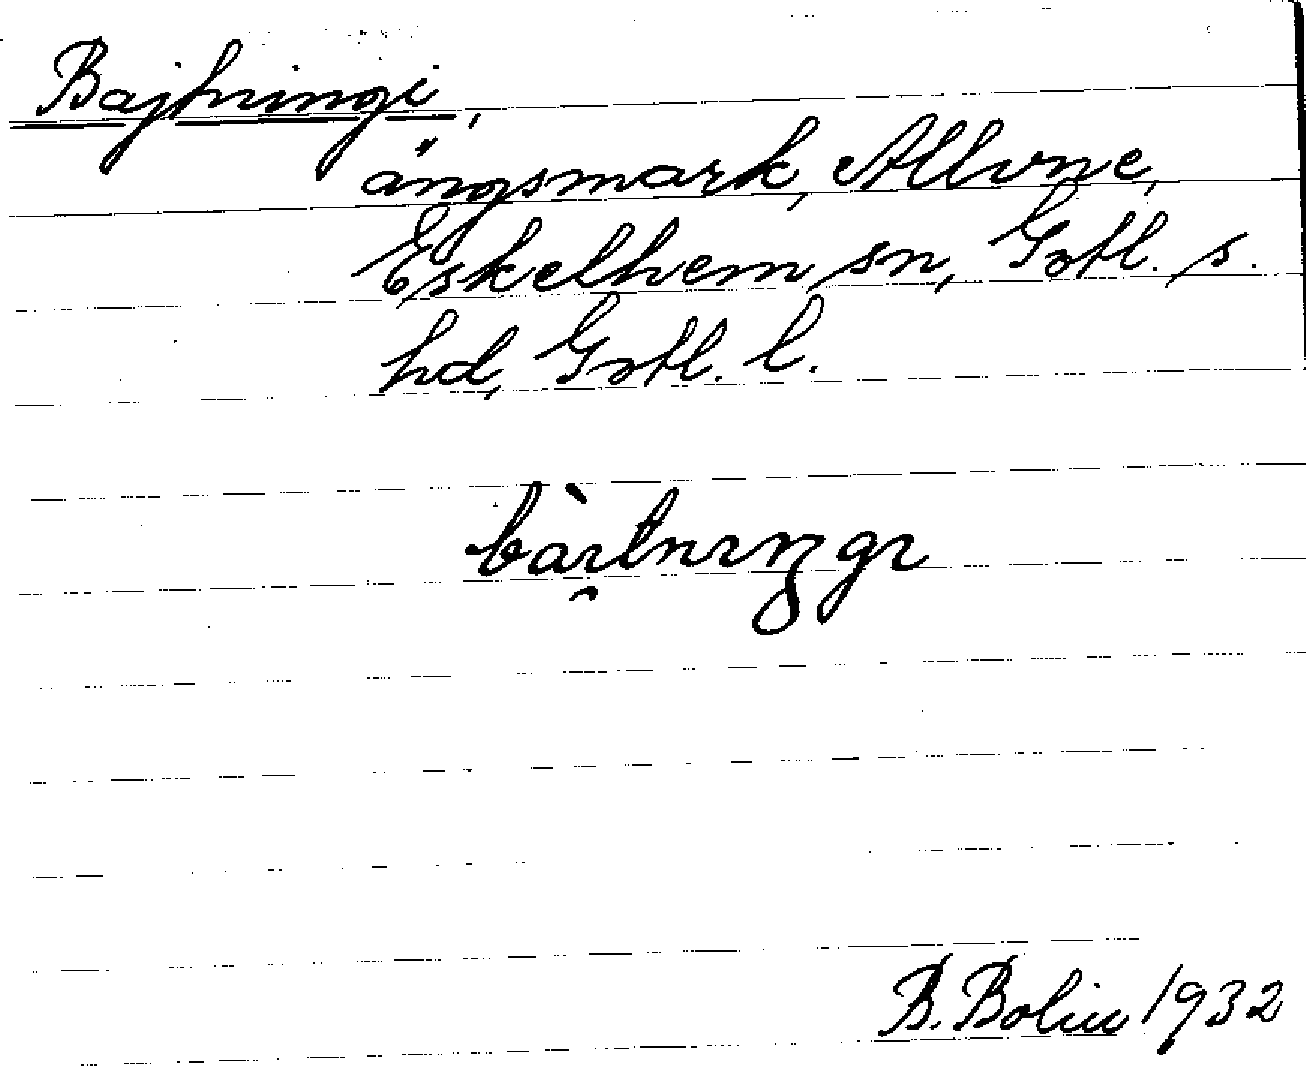 Bajhningi,
ängsmark, Allvne,
Eskelhem sn, Gotl. s.
hd, Gotl. l.
B. Bolin 1932